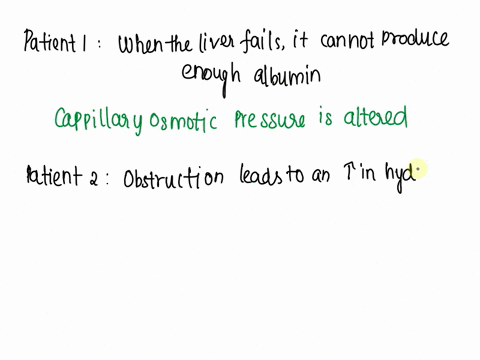 Patient 1 : When the liver fails, it cannot produce
enough albumin
Cappillary osmotic pressure is altered
Patient 2 : Obstruction leads to an ↑ in hyd